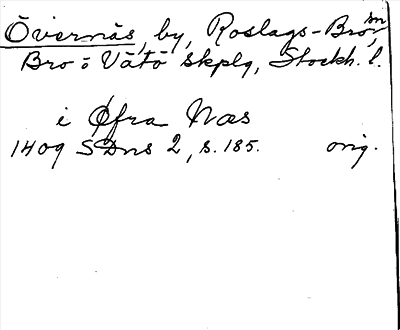 Övernäs, by, Roslags-Bro sn,
Bro o Vätö skplg, Stockh. l.
i Øfra Næs
1409 SDns 2, s. 185. orig.